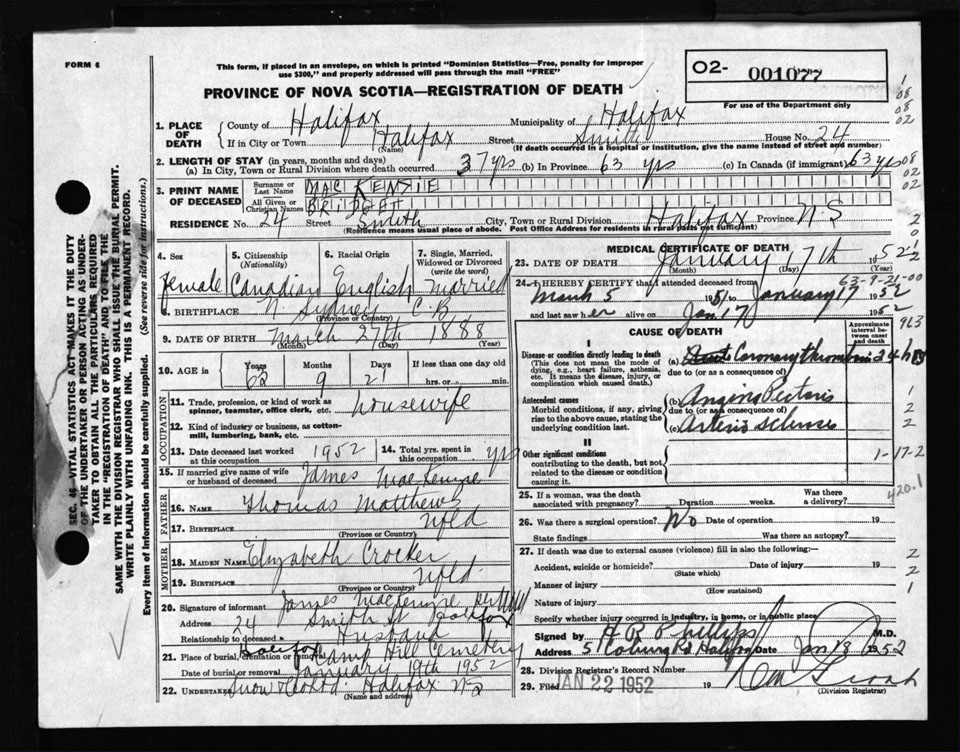 FORM 6
This form, if placed in an envelope, on which is printed "Dominion Statistics—Free, penalty for improper
use $300," and properly addressed will pass through the mail "FREE"
02- 001077
For use of the Department only
PROVINCE OF NOVA SCOTIA—REGISTRATION OF DEATH
1. PLACE OF DEATH
County of Halifax Municipality of Halifax
If in City or Town Halifax Street Smith House No. 24
(Name) (If death occurred in a hospital or institution, give the name instead of street and number)
2. LENGTH OF STAY (in years, months and days)
(a) In City, Town or Rural Division where death occurred 37 yrs (b) In Province 63 yrs (c) In Canada (if immigrant) 63 yrs
3. PRINT NAME OF DECEASED
Surname or Last Name MAC KENSIE
All Given or Christian Names BRIDGET
RESIDENCE No. 24 Street Smith City, Town or Rural Division Halifax Province N S
(Residence means usual place of abode. Post Office Address for residents in rural parts not sufficient)
4. Sex
Female
5. Citizenship (Nationality)
Canadian
6. Racial Origin
English
7. Single, Married, Widowed or Divorced (write the word)
Married
8. BIRTHPLACE N. Sydney C.B
(Province or Country)
9. DATE OF BIRTH March 27th 1888
(Month) (Day) (Year)
10. AGE in Years Months Days If less than one day
63 9 21 hrs. or min.
OCCUPATION
11. Trade, profession, or kind of work as
spinner, teamster, office clerk, etc. housewife
12. Kind of industry or business, as cotton-
mill, lumbering, bank, etc.
13. Date deceased last worked
at this occupation 1952
14. Total yrs. spent in
this occupation yrs
15. If married give name of wife
or husband of deceased James MacKenzie
FATHER
16. NAME Thomas Matthews
17. BIRTHPLACE Nfld
(Province or Country)
MOTHER
18. MAIDEN NAME Elizabeth Crocker
19. BIRTHPLACE Nfld.
(Province or Country)
20. Signature of informant James MacKenzie
Address 24 Smith St Halifax
Relationship to deceased Husband
21. Place of burial, cremation or removal Halifax Camp Hill Cemetery
Date of burial or removal January 19th 1952
22. Undertaker Snow & Co Ltd. Halifax NS
MEDICAL CERTIFICATE OF DEATH
23. DATE OF DEATH January 17th 1952
(Month) (Day)
24. I HEREBY CERTIFY that I attended deceased from
March 5 1951 to January 17 1952
and last saw her alive on Jan 17 1952
CAUSE OF DEATH
Approximate interval between onset and death
I
Disease or condition directly leading to death
(This does not mean the mode of
dying, e.g., heart failure, asthenia,
etc. It means the disease, injury, or
complication which caused death.)
(a) Coronary thrombosis 24 hrs
due to (or as a consequence of)
Antecedent causes
Morbid conditions, if any, giving
rise to the above cause, stating the
underlying condition last.
(b) Angina Pectoris
due to (or as a consequence of)
(c) Arterio Sclerosis
II
Other significant conditions
contributing to the death, but not
related to the disease or condition
causing it.
25. If a woman, was the death
associated with pregnancy? Duration weeks. Was there a delivery?
26. Was there a surgical operation? No Date of operation 19
State findings Was there an autopsy?
27. If death was due to external causes (violence) fill in also the following:—
Accident, suicide or homicide? Date of injury 19
(State which)
Manner of injury
(How sustained)
Nature of injury
Specify whether injury occurred in industry, in home, or in public place
Signed by M.D.
Address 5 Coburg Rd. Halifax Date Jan 18 1952
28. Division Registrar's Record Number
29. Filed JAN 22 1952 19
(Division Registrar)
1
08
08
02
08
02
02
2
0
2
63-9-21-00
963
1
2
2
1-17-2
420.1
2
2
1
SEC. 46—VITAL STATISTICS ACT MAKES IT THE DUTY
OF THE UNDERTAKER OR PERSON ACTING AS UNDER-
TAKER TO OBTAIN ALL THE PARTICULARS REQUIRED
IN THE "REGISTRATION OF DEATH" AND TO FILE THE
SAME WITH THE DIVISION REGISTRAR WHO SHALL ISSUE THE BURIAL PERMIT.
WRITE PLAINLY WITH UNFADING INK. THIS IS A PERMANENT RECORD.
Every item of information should be carefully supplied. (See reverse side for instructions.)